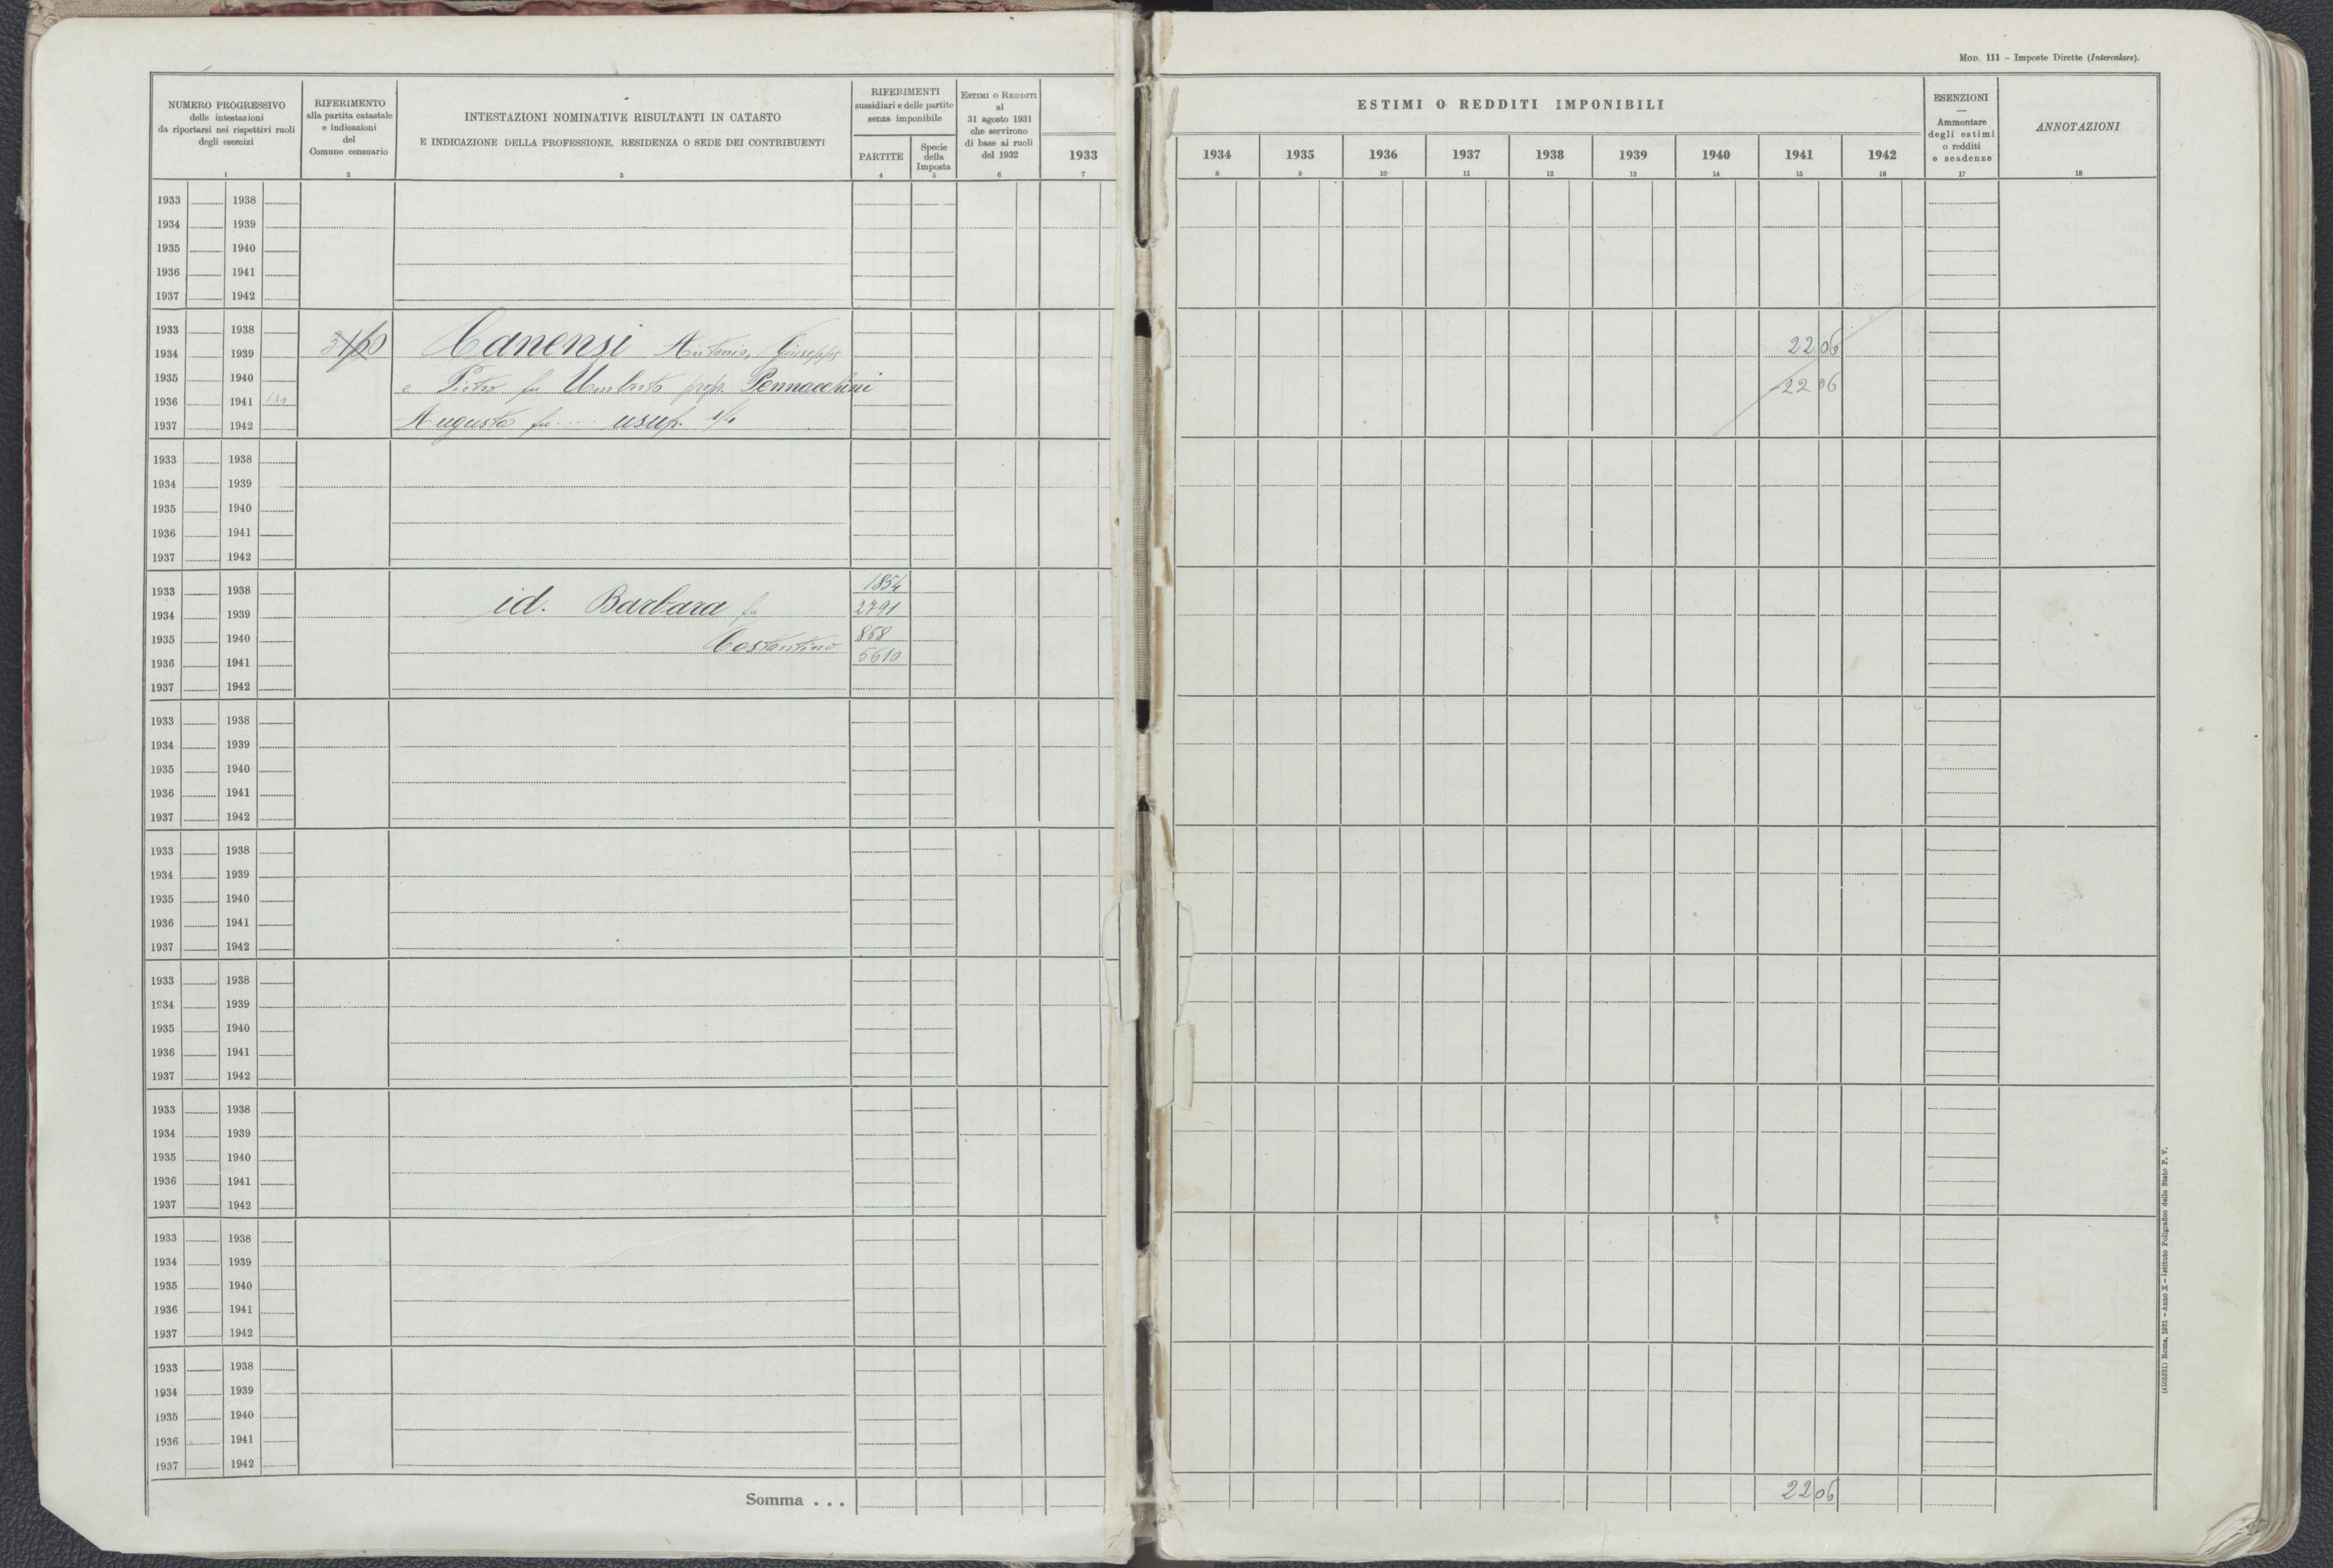 MOD. 111 – Imposte Dirette (Intercalare).
NUMERO PROGRESSIVO
delle intestazioni
da riportarsi nei rispettivi ruoli
degli esercizi
1
RIFERIMENTO
alla partita catastale
e indicazioni
del
Comune censuario
2
INTESTAZIONI NOMINATIVE RISULTANTI IN CATASTO
E INDICAZIONE DELLA PROFESSIONE, RESIDENZA O SEDE DEI CONTRIBUENTI
3
RIFERIMENTI
sussidiari e delle partite
senza imponibile
PARTITE
4
Specie
della
Imposta
5
ESTIMI O REDDITI
al
31 agosto 1931
che servirono
di base ai ruoli
del 1932
6
1933
7
ESTIMI O REDDITI IMPONIBILI
1934 1935 1936 1937 1938 1939 1940 1941 1942
8 9 10 11 12 13 14 15 16
ESENZIONI
—
Ammontare
degli estimi
o redditi
e scadenze
17
ANNOTAZIONI
18
1933 1938
1934 1939
1935 1940
1936 1941
1937 1942
1933 1938
1934 1939 Canensi Antonio, Giuseppe 2206
1935 1940 e Pietro fu Umberto prop. Pennacchini 2206
1936 1941
1937 1942 Augusta fu.... usuf. 1/4
1933 1938
1934 1939
1935 1940
1936 1941
1937 1942
1933 1938 1854
1934 1939 id. Barbara fu 2791
1935 1940 Costantino 868
1936 1941 5610
1937 1942
1933 1938
1934 1939
1935 1940
1936 1941
1937 1942
1933 1938
1934 1939
1935 1940
1936 1941
1937 1942
1933 1938
1934 1939
1935 1940
1936 1941
1937 1942
1933 1938
1934 1939
1935 1940
1936 1941
1937 1942
1933 1938
1934 1939
1935 1940
1936 1941
1937 1942
1933 1938
1934 1939
1935 1940
1936 1941
1937 1942
Somma . . . 2206
(4103581) Roma, 1931 – Anno X – Istituto Poligrafico dello Stato P. V.